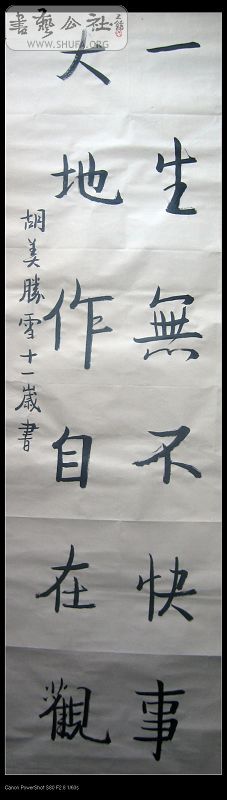 書藝公社
WWW.SHUFA.ORG
一生無不快事
大地作自在觀
胡美勝雪十一歲書
Canon PowerShot S80 F2.8 1/60s